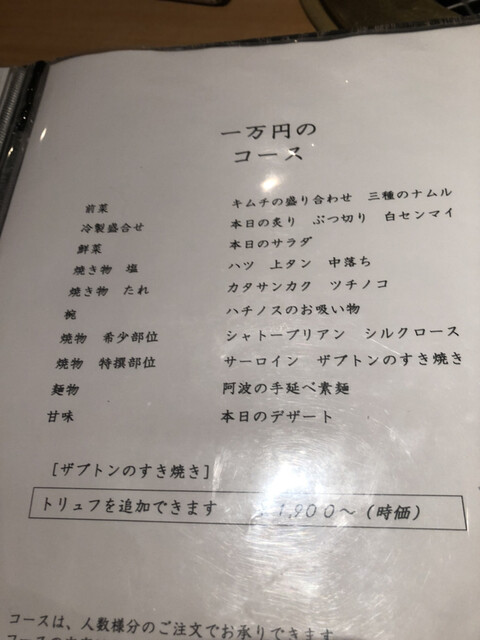 一万円の
コース
前菜 キムチの盛り合わせ 三種のナムル
冷製盛合せ 本日の炙り ぶつ切り 白センマイ
鮮菜 本日のサラダ
焼き物 塩 ハツ 上タン 中落ち
焼き物 たれ カタサンカク ツチノコ
椀 ハチノスのお吸い物
焼物 希少部位 シャトーブリアン シルクロース
焼物 特撰部位 サーロイン ザブトンのすき焼き
麺物 阿波の手延べ素麺
甘味 本日のデザート
[ザブトンのすき焼き]
トリュフを追加できます 1,900～(時価)
コースは、人数様分のご注文でお承りできます